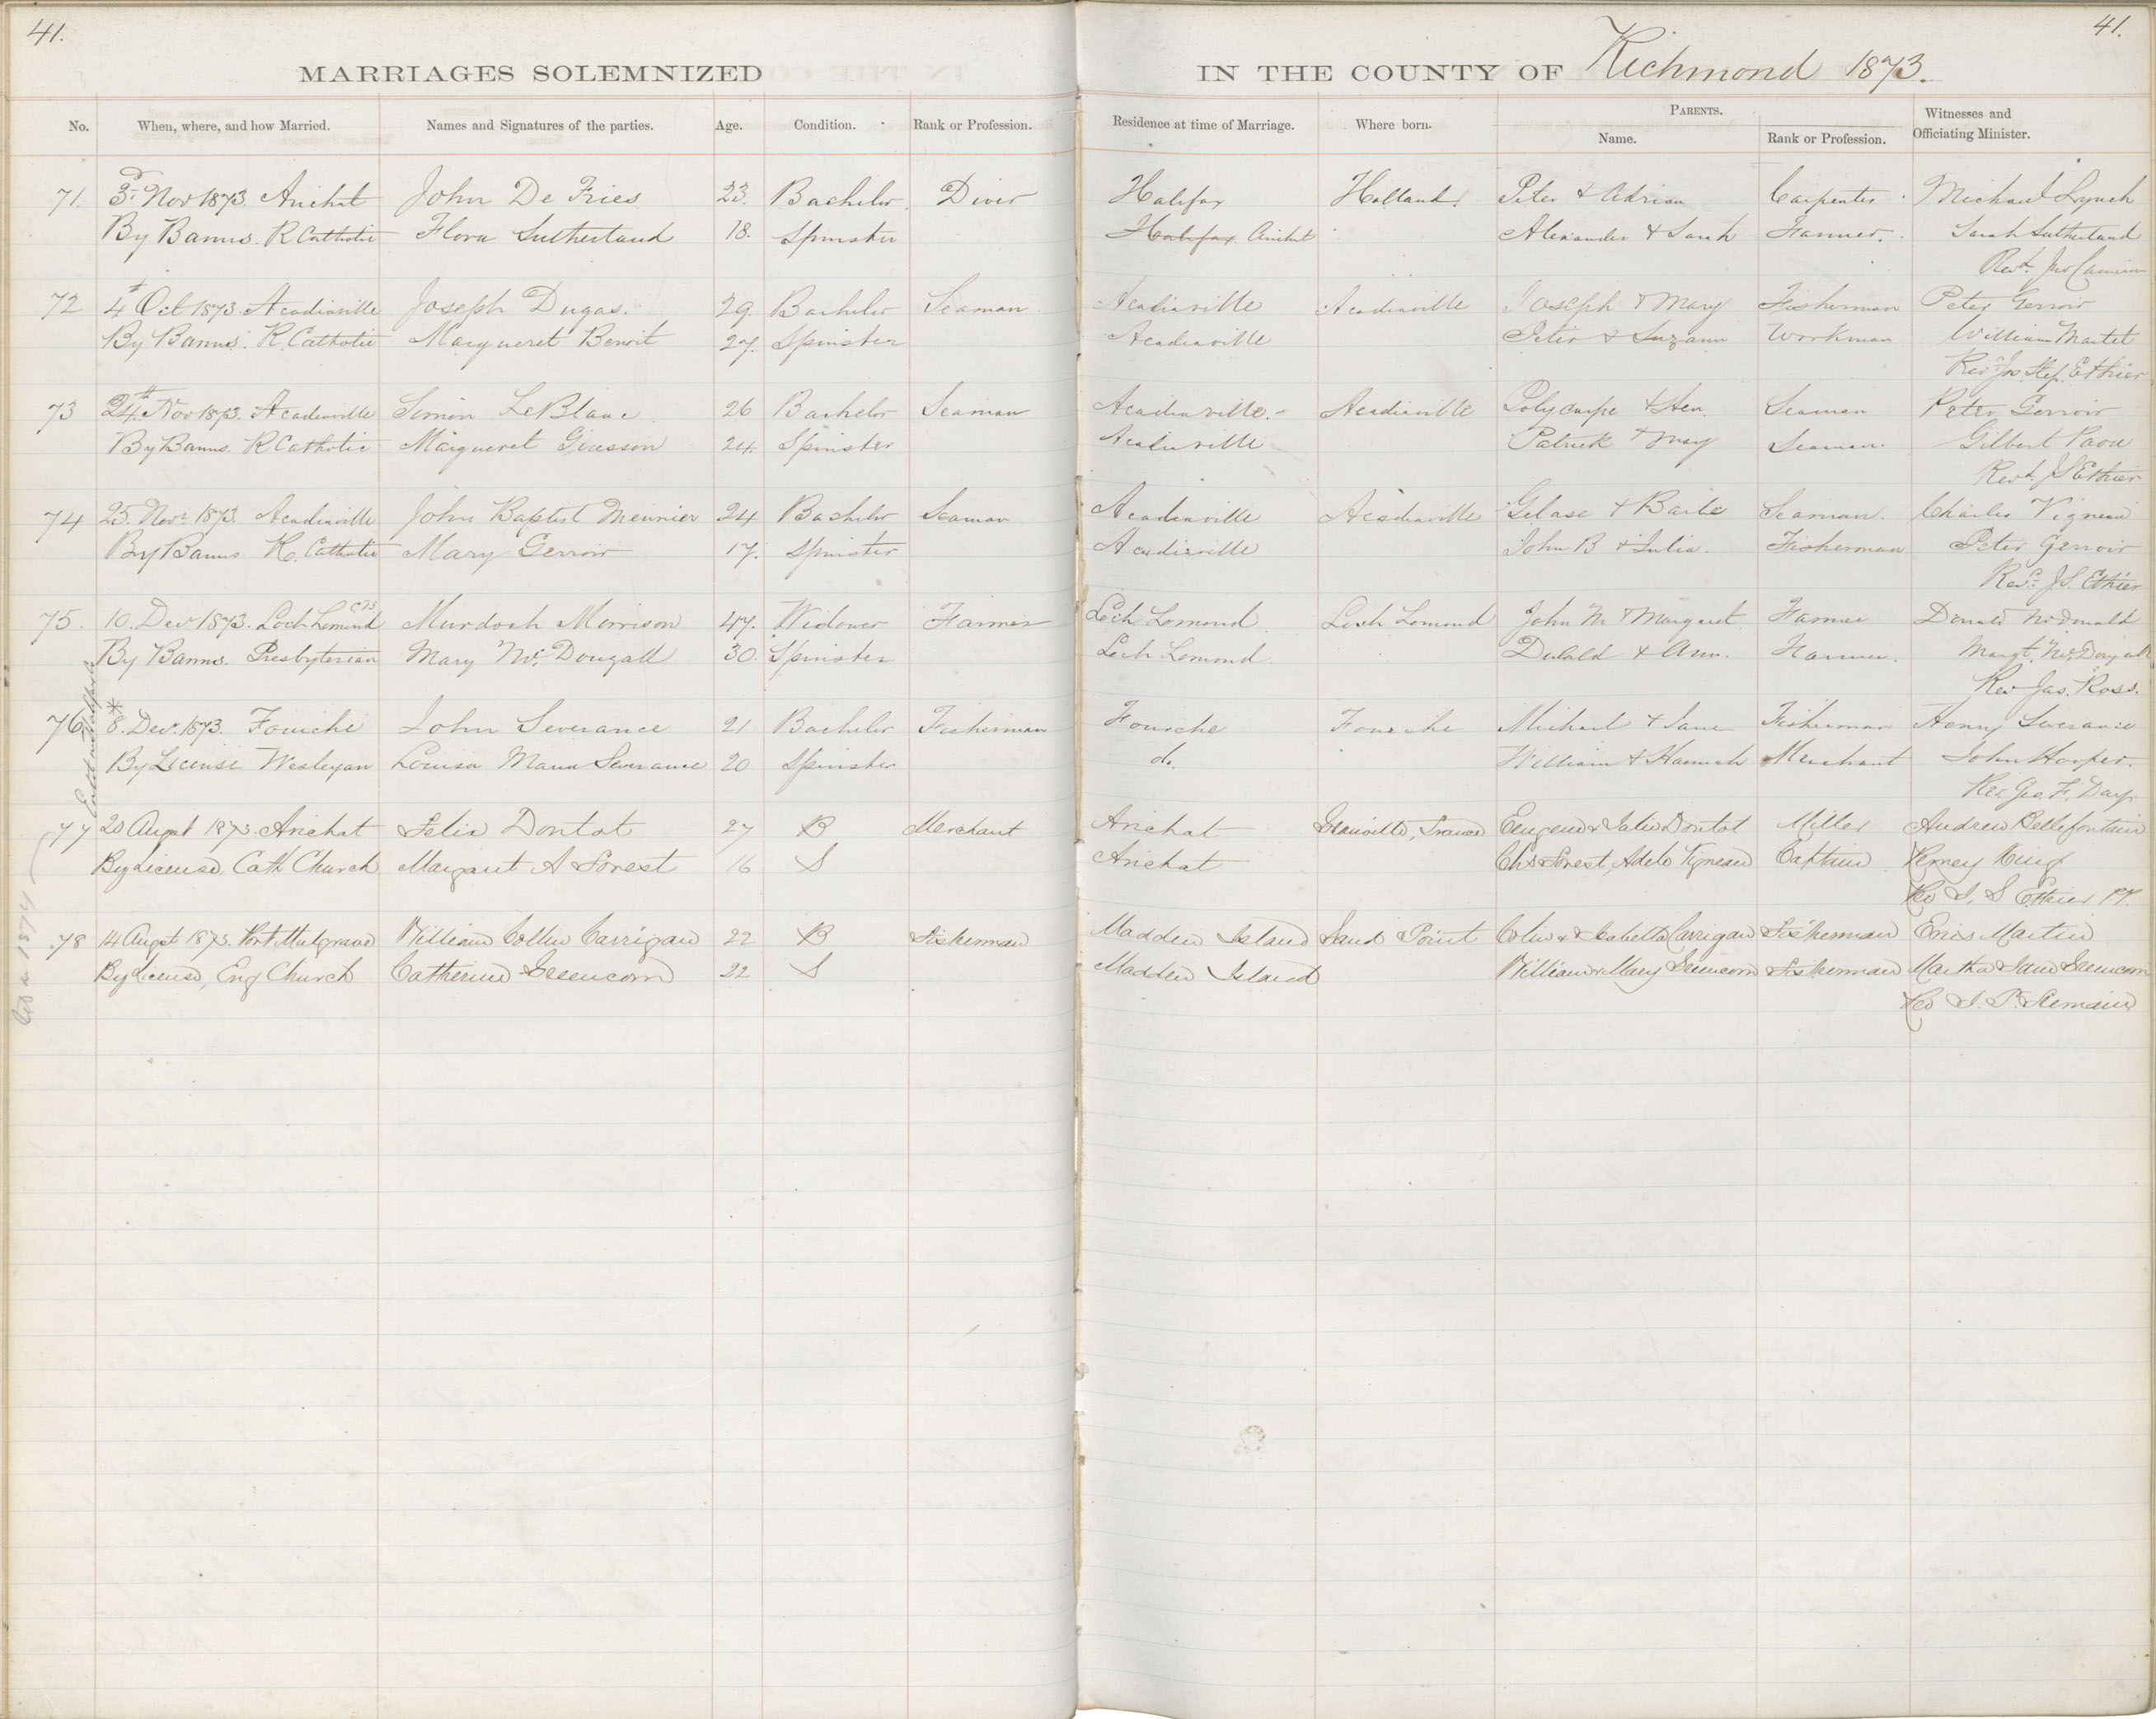 41.
41.
MARRIAGES SOLEMNIZED IN THE COUNTY OF Richmond 1873.
No. When, where, and how Married. Names and Signatures of the parties. Age. Condition. Rank or Profession. Residence at time of Marriage. Where born. PARENTS. Name. Rank or Profession. Witnesses and Officiating Minister.
71. 3d Nov 1873 Arichat John De Fries 23. Bachelor Diver Halifax Holland Peter & Adrian Carpenter Michael Lynch
By Banns. R Catholic Flora Sutherland 18. Spinster Halifax Arichat Alexander & Sarah Farmer. Sarah Sutherland
Revd. Jno Cameron
72 4th Oct 1873. Acadiaville Joseph Dugas. 29. Bachelor Seaman Acadiaville Acadiaville Joseph & Mary Fisherman Peter Gerroir
By Banns. R. Catholic Margueret Benoit 27. Spinster Acadiaville Peter & Suzann Workman William Martet
Rev Jos. Step. Ethier
73 24th Nov 1873. Acadiaville Simon LeBlanc 26 Bachelor Seaman Acadiaville. Acadiaville Polycarpe & Hen. Seaman Peter Gerroir
By Banns. R Catholic Margueret Giasson 24. Spinster Acadiaville Patrick & Mary Seaman. Gilbert Paon
Revd. J S Ethier
74 25. Nov. 1873. Acadiaville John Baptist Meunier 24 Bachelor Seaman Acadiaville Acadiaville Gelase & Barbe Seaman. Charles Vigneau
By Banns R. Catholic Mary Gerroir 17. Spinster Acadiaville John B & Julia. Fisherman Peter Gerroir
Revd. J S. Ethier
75. 10. Dec 1873. Loch Lomond C.B. Murdoch Morrison 47. Widower Farmer Loch Lomond Loch Lomond John M. & Margaret Farmer Donald McDonald
By Banns. Presbyterian Mary McDougall 30. Spinster Loch Lomond. & Ann. Farmer. Margt. McDougall
Rev Jas. Ross.
76. * 8. Dec. 1873. Fourche John Severance 21 Bachelor Fisherman Fourche Fourche Michael & Jane Fisherman Henry Severance
By License Wesleyan Louisa Maria Severance 20 Spinster do. William & Hannah Merchant John Hooper.
Rev. Geo. F. Day.
77 20 August 1873. Arichat Felix Dontot 27 B Merchant Arichat Granville, France Eugene & Julie Dontot Miller Andrew Bellefontain
By License, Cath Church Margaret A Forest 16 S Arichat Chs Forest, Adele Vigneau Captain King
Rev J. S Ethier PP.
78 14 August 1873. Port Mulgrave William Collin Carrigan 22 B Fisherman Madden Island Sand Point Colin & Isabella Carrigan Fisherman Enos Martin
By License, Eng Church Catherine Greencorn 22 S Madden Island William & Mary Greencorn Fisherman Martha Jane Greencorn
Rev
1874